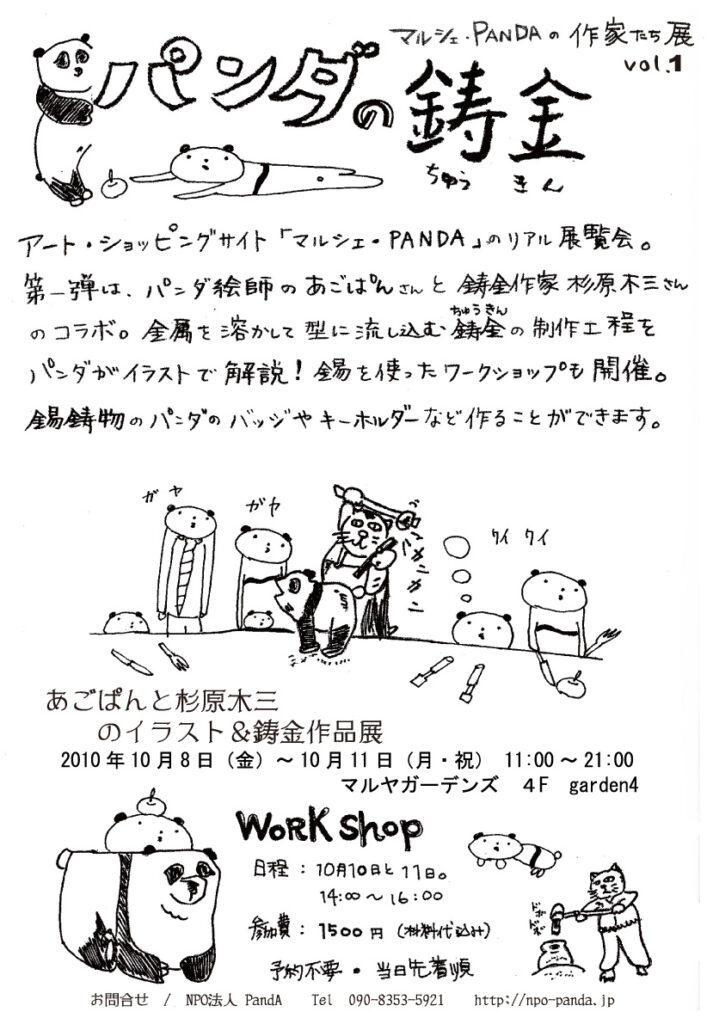 マルシェ・PANDAの作家たち展
vol.1
パンダの鋳金
ちゅう きん
アート・ショッピングサイト「マルシェ・PANDA」のリアル展覧会。
第一弾は、パンダ絵師のあごぱんさんと鋳金作家杉原木三さん
ちゅうきん
のコラボ。金属を溶かして型に流し込む鋳金の制作工程を
パンダがイラストで解説！錫を使ったワークショップも開催。
錫鋳物のパンダのバッジやキーホルダーなど作ることができます。
ガヤ
ガヤ
カンカンカン
ワイ ワイ
あごぱんと杉原木三
のイラスト＆鋳金作品展
2010年10月8日（金）～10月11日（月・祝） 11:00～21:00
マルヤガーデンズ 4F garden4
WORK shop
日程：10月10日と11日。
14:00～16:00
参加費：1500円（材料代込み）
予約不要・当日先着順
ドボドボ
お問合せ / NPO法人 PandA Tel 090-8353-5921 http://npo-panda.jp